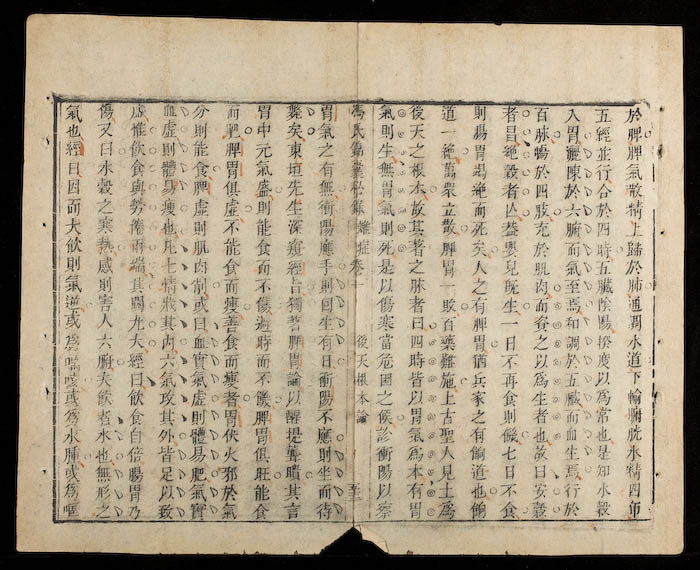 於脾脾氣散精上歸於肺通調水道下輸膀胱水精四布
五經並行合於四時五臟陰陽揆度以爲常也是知水穀
入胃灑陳於六腑而氣至焉和調於五臟而血生焉行於
百脉暢於四肢充於肌肉而養之以爲生者也故曰安穀
者昌絕穀者亡蓋嬰兒旣生一日不再食則饑七日不食
則腸胃竭絕而死矣人之有脾胃猶兵家之有餉道也餉
道一絕萬衆立散脾胃一敗百藥難施上古聖人見土爲
後天之根本故其著之脉者曰四時皆以胃氣爲本有胃
氣則生無胃氣則死是以傷寒當危困之候診衝陽以察
馮氏錦囊秘錄 雜症卷一 後天根本論
胃氣之有無衝陽應手則回生有日衝陽不應則坐而待
斃矣東垣先生深窺經旨獨著脾胃論以醒提聾聵其言
胃中元氣盛則能食而不傷過時而不餒脾胃俱旺能食
而肥脾胃俱虛不能食而瘦善食而瘦者胃伏火邪於氣
分則能食脾虛則肌肉削或曰血實氣虛則體易肥氣實
血虛則體易瘦也凡七情戕其內六氣攻其外皆足以致
虛惟飲食與勞倦兩端其關尤大經曰飲食自倍腸胃乃
傷又曰水穀之寒熱感則害人六腑夫飲者水也無形之
氣也經曰因而大飲則氣逆或爲喘咳或爲水腫或爲嘔